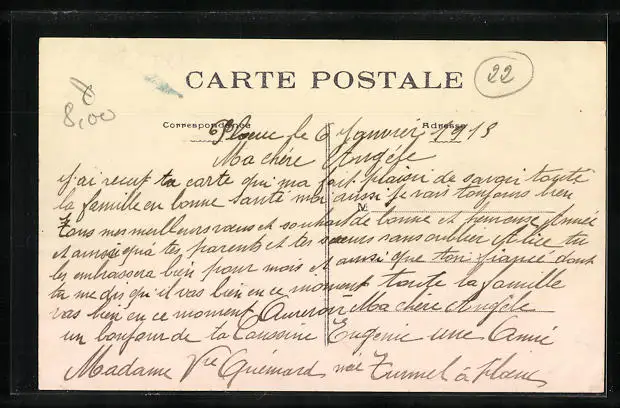 22
8,00
CARTE POSTALE
Correspondance Adresse
Ploeuc le 6 Janvier 1913
Ma chère Angèle
j'ai recut ta carte qui ma fait plaisir de savoir toute
ta famille en bonne santé moi aussi je vais toujours bien
M
tous mes meilleurs vœux et souhait de bonne et heureuse Année
et aussi qua tes parents et tes sœurs sans oublier Alice tu
les embrassera bien pour mois et aussi que ton fiancé dont
tu me dis qu'il vas bien en ce moment toute la famille
vas bien en ce moment Aurevoir Ma chère Angèle
un bonjour de ta Coussine Eugénie une Amie
Madame Vve Guémard née Turmel à Ploeuc